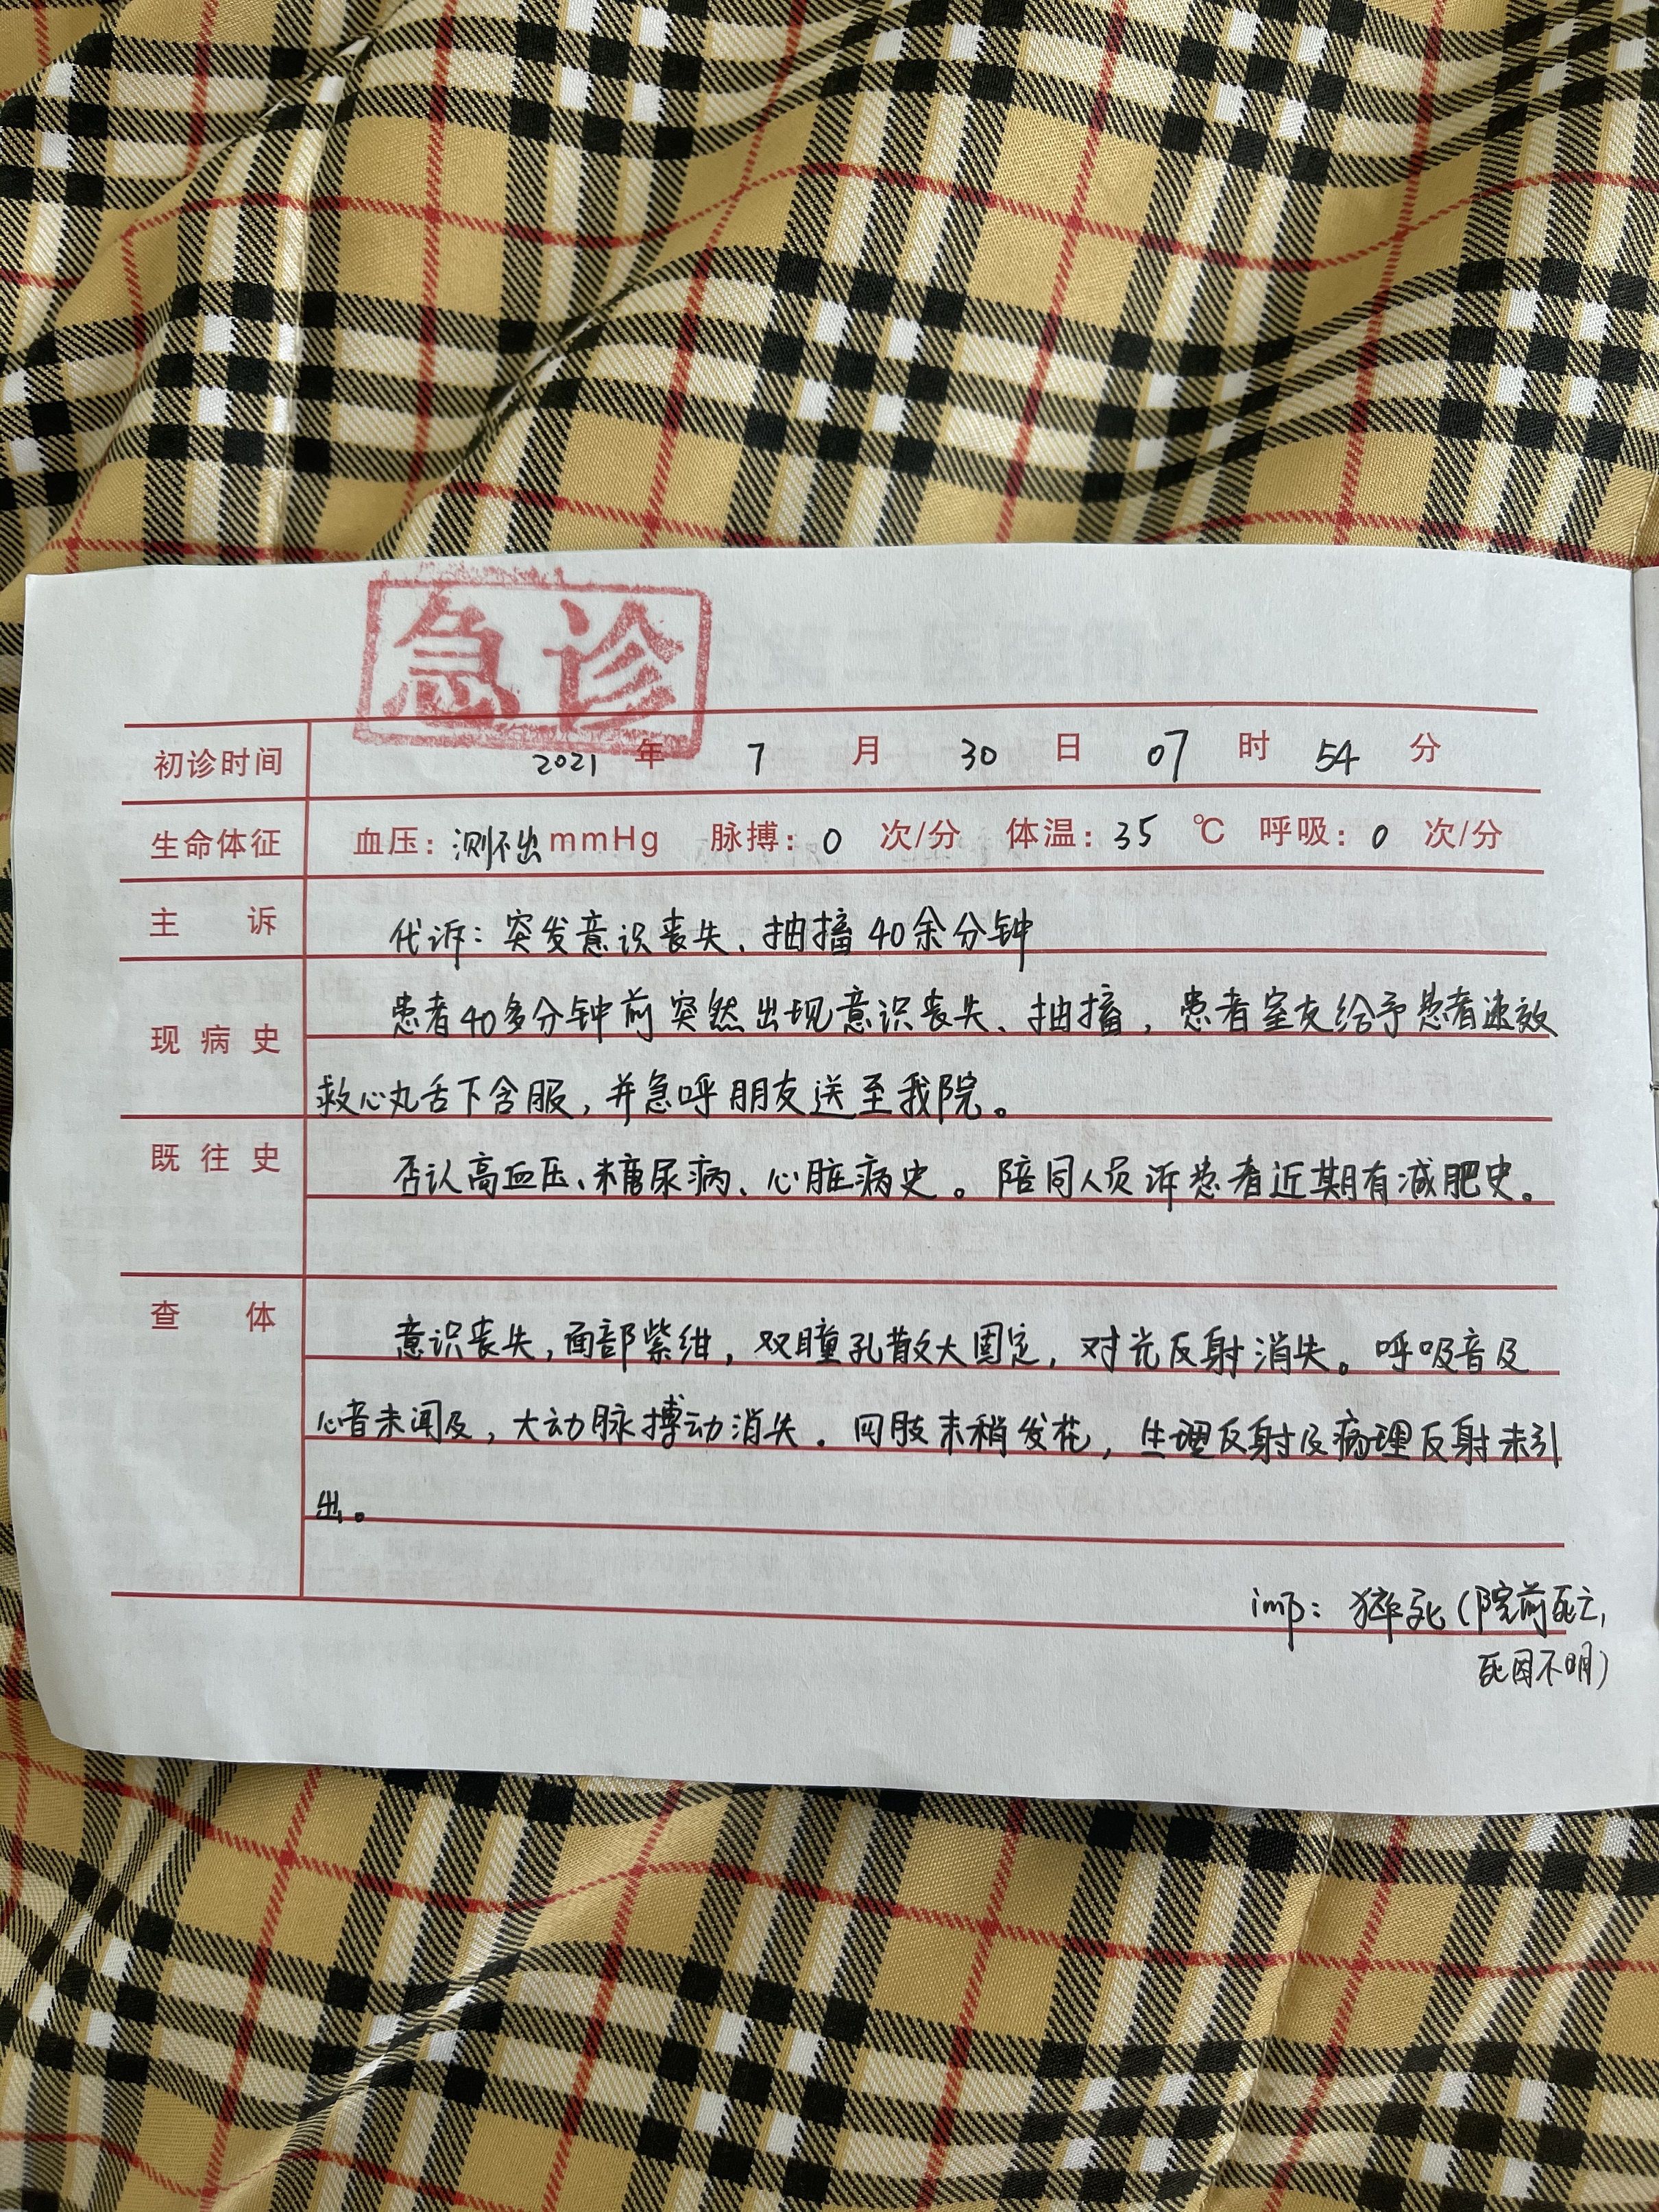 急诊
初诊时间 2021 年 7 月 30 日 07 时 54 分
生命体征 血压：测不出mmHg 脉搏：0 次/分 体温：35 ℃ 呼吸：0 次/分
主诉 代诉：突发意识丧失、抽搐40余分钟
患者40多分钟前突然出现意识丧失、抽搐，患者室友给予患者速效
现病史
救心丸舌下含服，并急呼朋友送至我院。
既往史 否认高血压、糖尿病、心脏病史。陪同人员诉患者近期有减肥史。
查体 意识丧失，面部紫绀，双瞳孔散大固定，对光反射消失。呼吸音及
心音未闻及，大动脉搏动消失。四肢末稍发花，生理反射及病理反射未引
出。
imp：猝死（院前死亡，
死因不明）